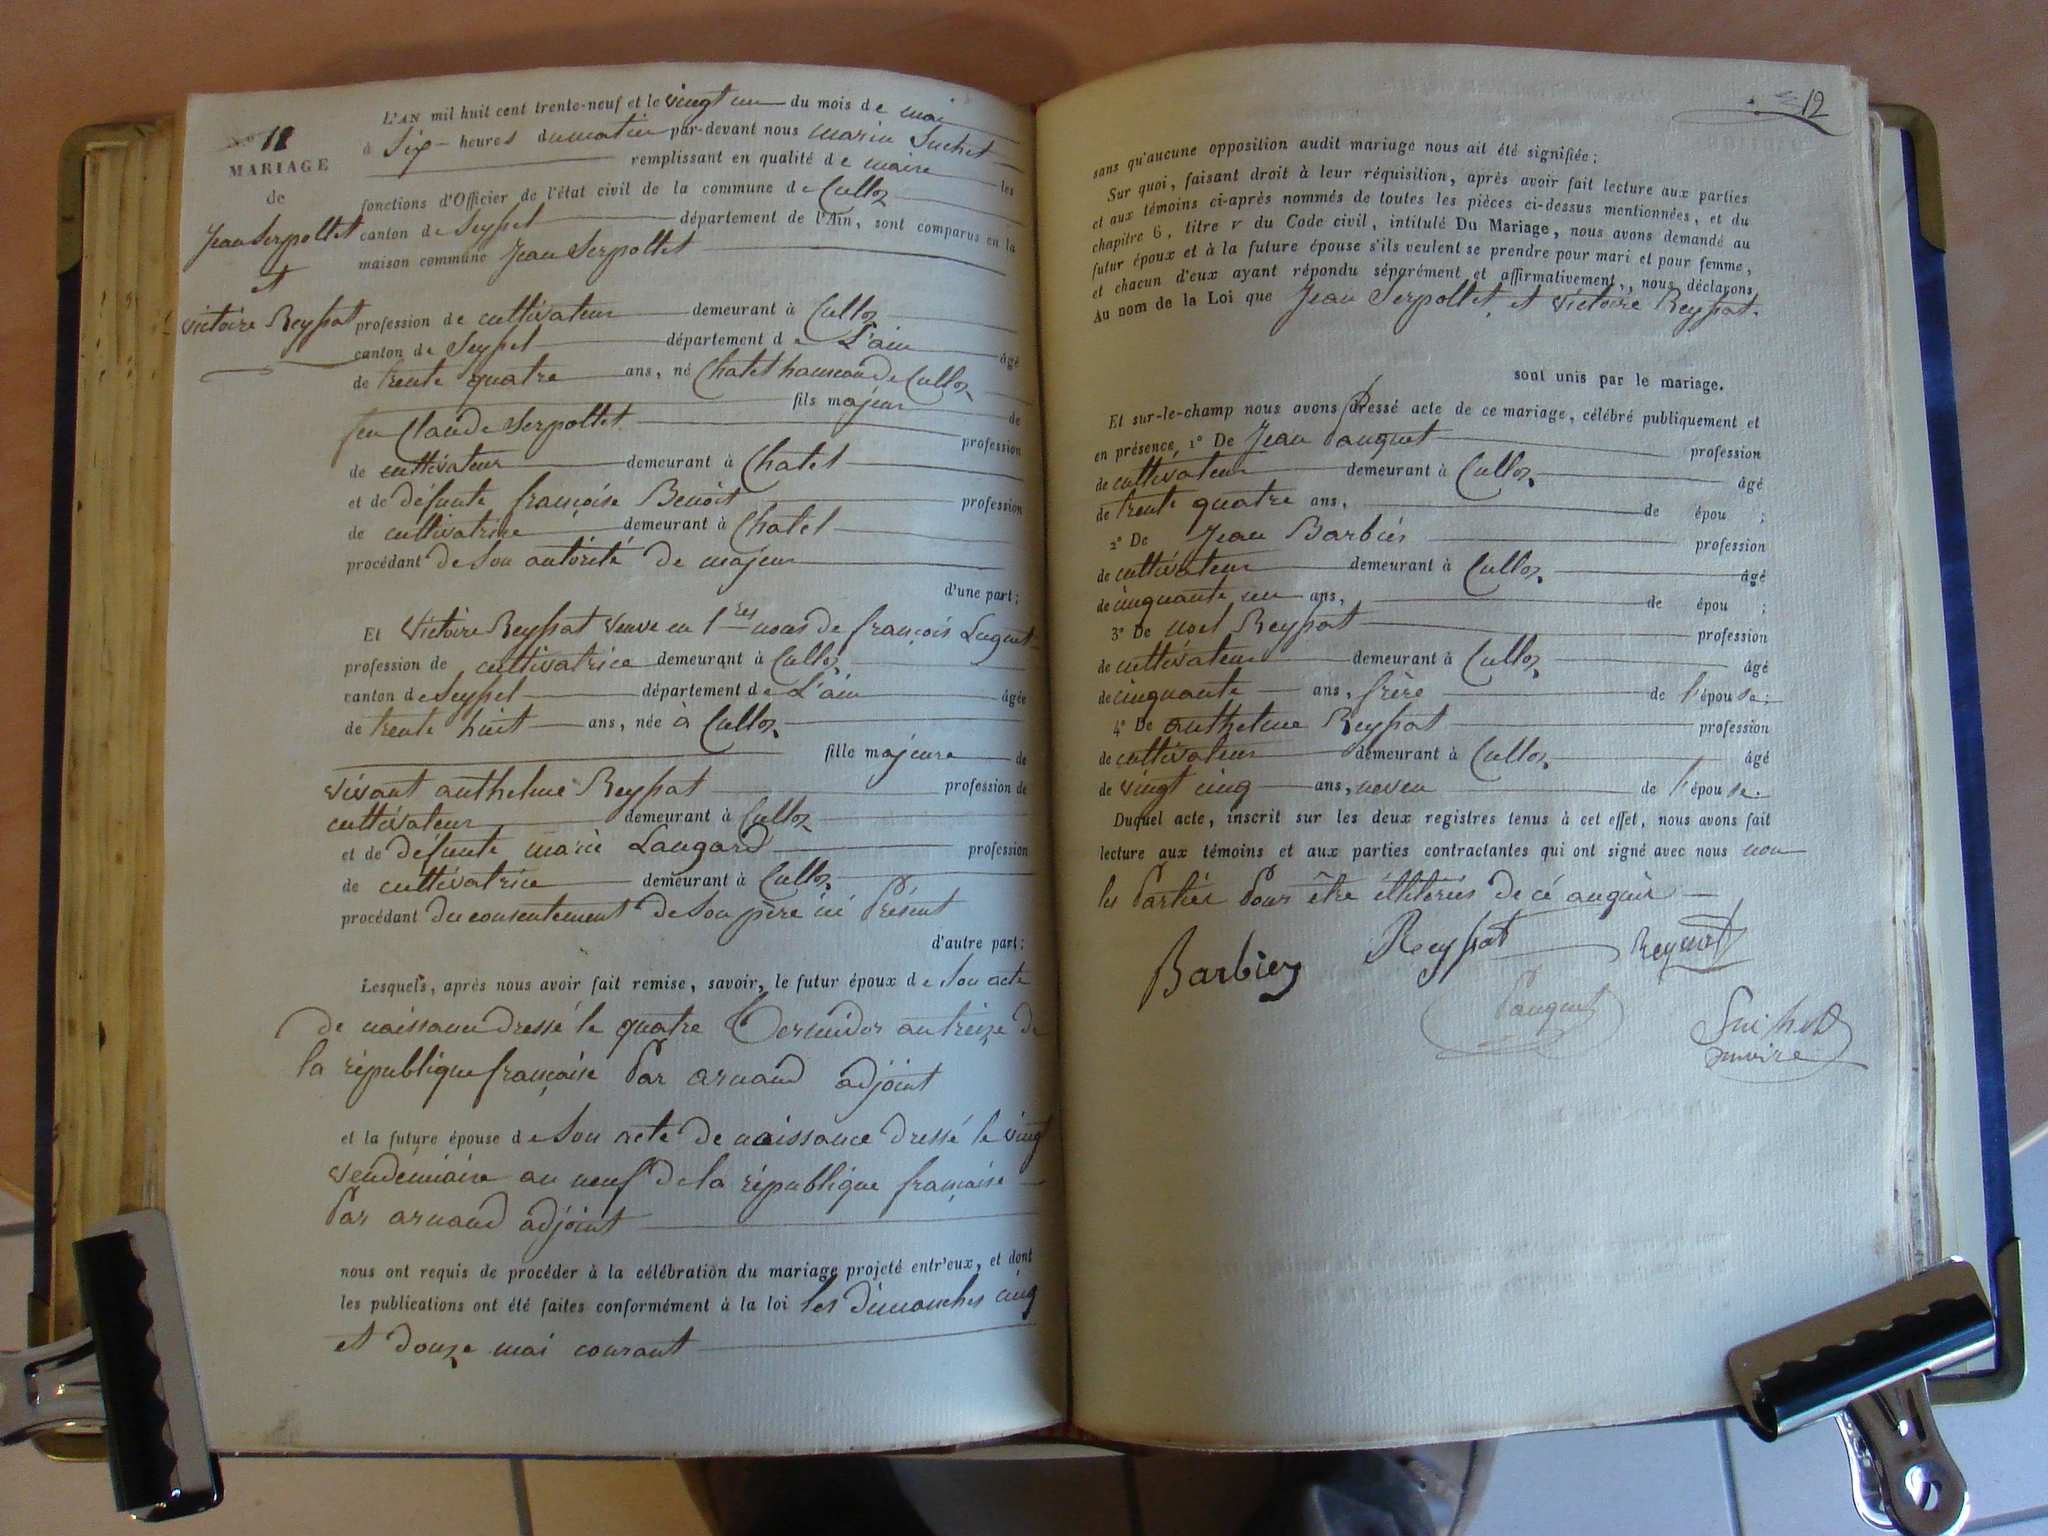 N.º 12
MARIAGE
de
Jean Serpollet
et
victoire Reyssat
L'AN mil huit cent trente-neuf et le vingt un du mois de mai
à Six heures du matin par-devant nous marin Suchet
remplissant en qualité de maire les
fonctions d'Officier de l'état civil de la commune de Culloz
canton de Seyssel département de l'Ain, sont comparus en la
maison commune Jean Serpollet
profession de cultivateur demeurant à Culloz
canton de Seyssel département de L'ain âgé
de trente quatre ans, né Chatel hameau de Culloz
fils majeur de
feu Claude Serpollet profession
de cultivateur demeurant à Chatel
et de défunte françoise Benoit profession
de cultivatrice demeurant à Chatel
procédant de Son autórité de majeur
d'une part;
Et Victoire Reyssat veuve en 1res noces de françois Luquet
profession de cultivatrice demeurant à Culloz
canton de Seyssel département de L'ain âgée
de trente huit ans, née à Culloz
fille majeure de
vivant anthelme Reyssat profession de
cultivateur demeurant à Culloz
et de défunte marie Laugard profession
de cultivatrice demeurant à Culloz
procédant du consentement de Son père ici Présent
d'autre part;
Lesquels, après nous avoir fait remise, savoir, le futur époux de Son acte
de naissance dressé le quatre Termidor an treize de
la république françoise Par arnaud adjoint
et la future épouse de Son acte de naissance dressé le vingt
vendémiaire an neuf de la république françoise
Par arnaud adjoint
nous ont requis de procéder à la célébration du mariage projeté entr'eux, et dont
les publications ont été faites conformément à la loi les dimanches cinq
et douze mai courant
12
sans qu'aucune opposition audit mariage nous ait été signifiée;
Sur quoi, faisant droit à leur réquisition, après avoir fait lecture aux parties
et aux témoins ci-après nommés de toutes les pièces ci-dessus mentionnées, et du
chapitre 6, titre v du Code civil, intitulé Du Mariage, nous avons demandé au
futur époux et à la future épouse s'ils veulent se prendre pour mari et pour femme,
et chacun d'eux ayant répondu séparément et affirmativement, nous déclarons,
Au nom de la Loi que Jean Serpollet, et victoire Reyssat.
sont unis par le mariage.
Et sur-le-champ nous avons dressé acte de ce mariage, célébré publiquement et
en présence, 1º De Jean Pauquet profession
de cultivateur demeurant à Culloz âgé
de trente quatre ans, de épou ;
2º De Jean Barbier profession
de cultivateur demeurant à Culloz âgé
de cinquante un ans, de épou ;
3º De noel Reyssat profession
de cultivateur demeurant à Culloz âgé
de cinquante ans, frère de l'épouse;
4º De anthelme Reyssat profession
de cultivateur demeurant à Culloz âgé
de vingt cinq ans, neveu de l'épouse.
Duquel acte, inscrit sur les deux registres tenus à cet effet, nous avons fait
lecture aux témoins et aux parties contractantes qui ont signé avec nous non
les Parties Pour être illitérées de ce enquis
Barbier Reyssat Reyssat
Pauquet Suchet
maire